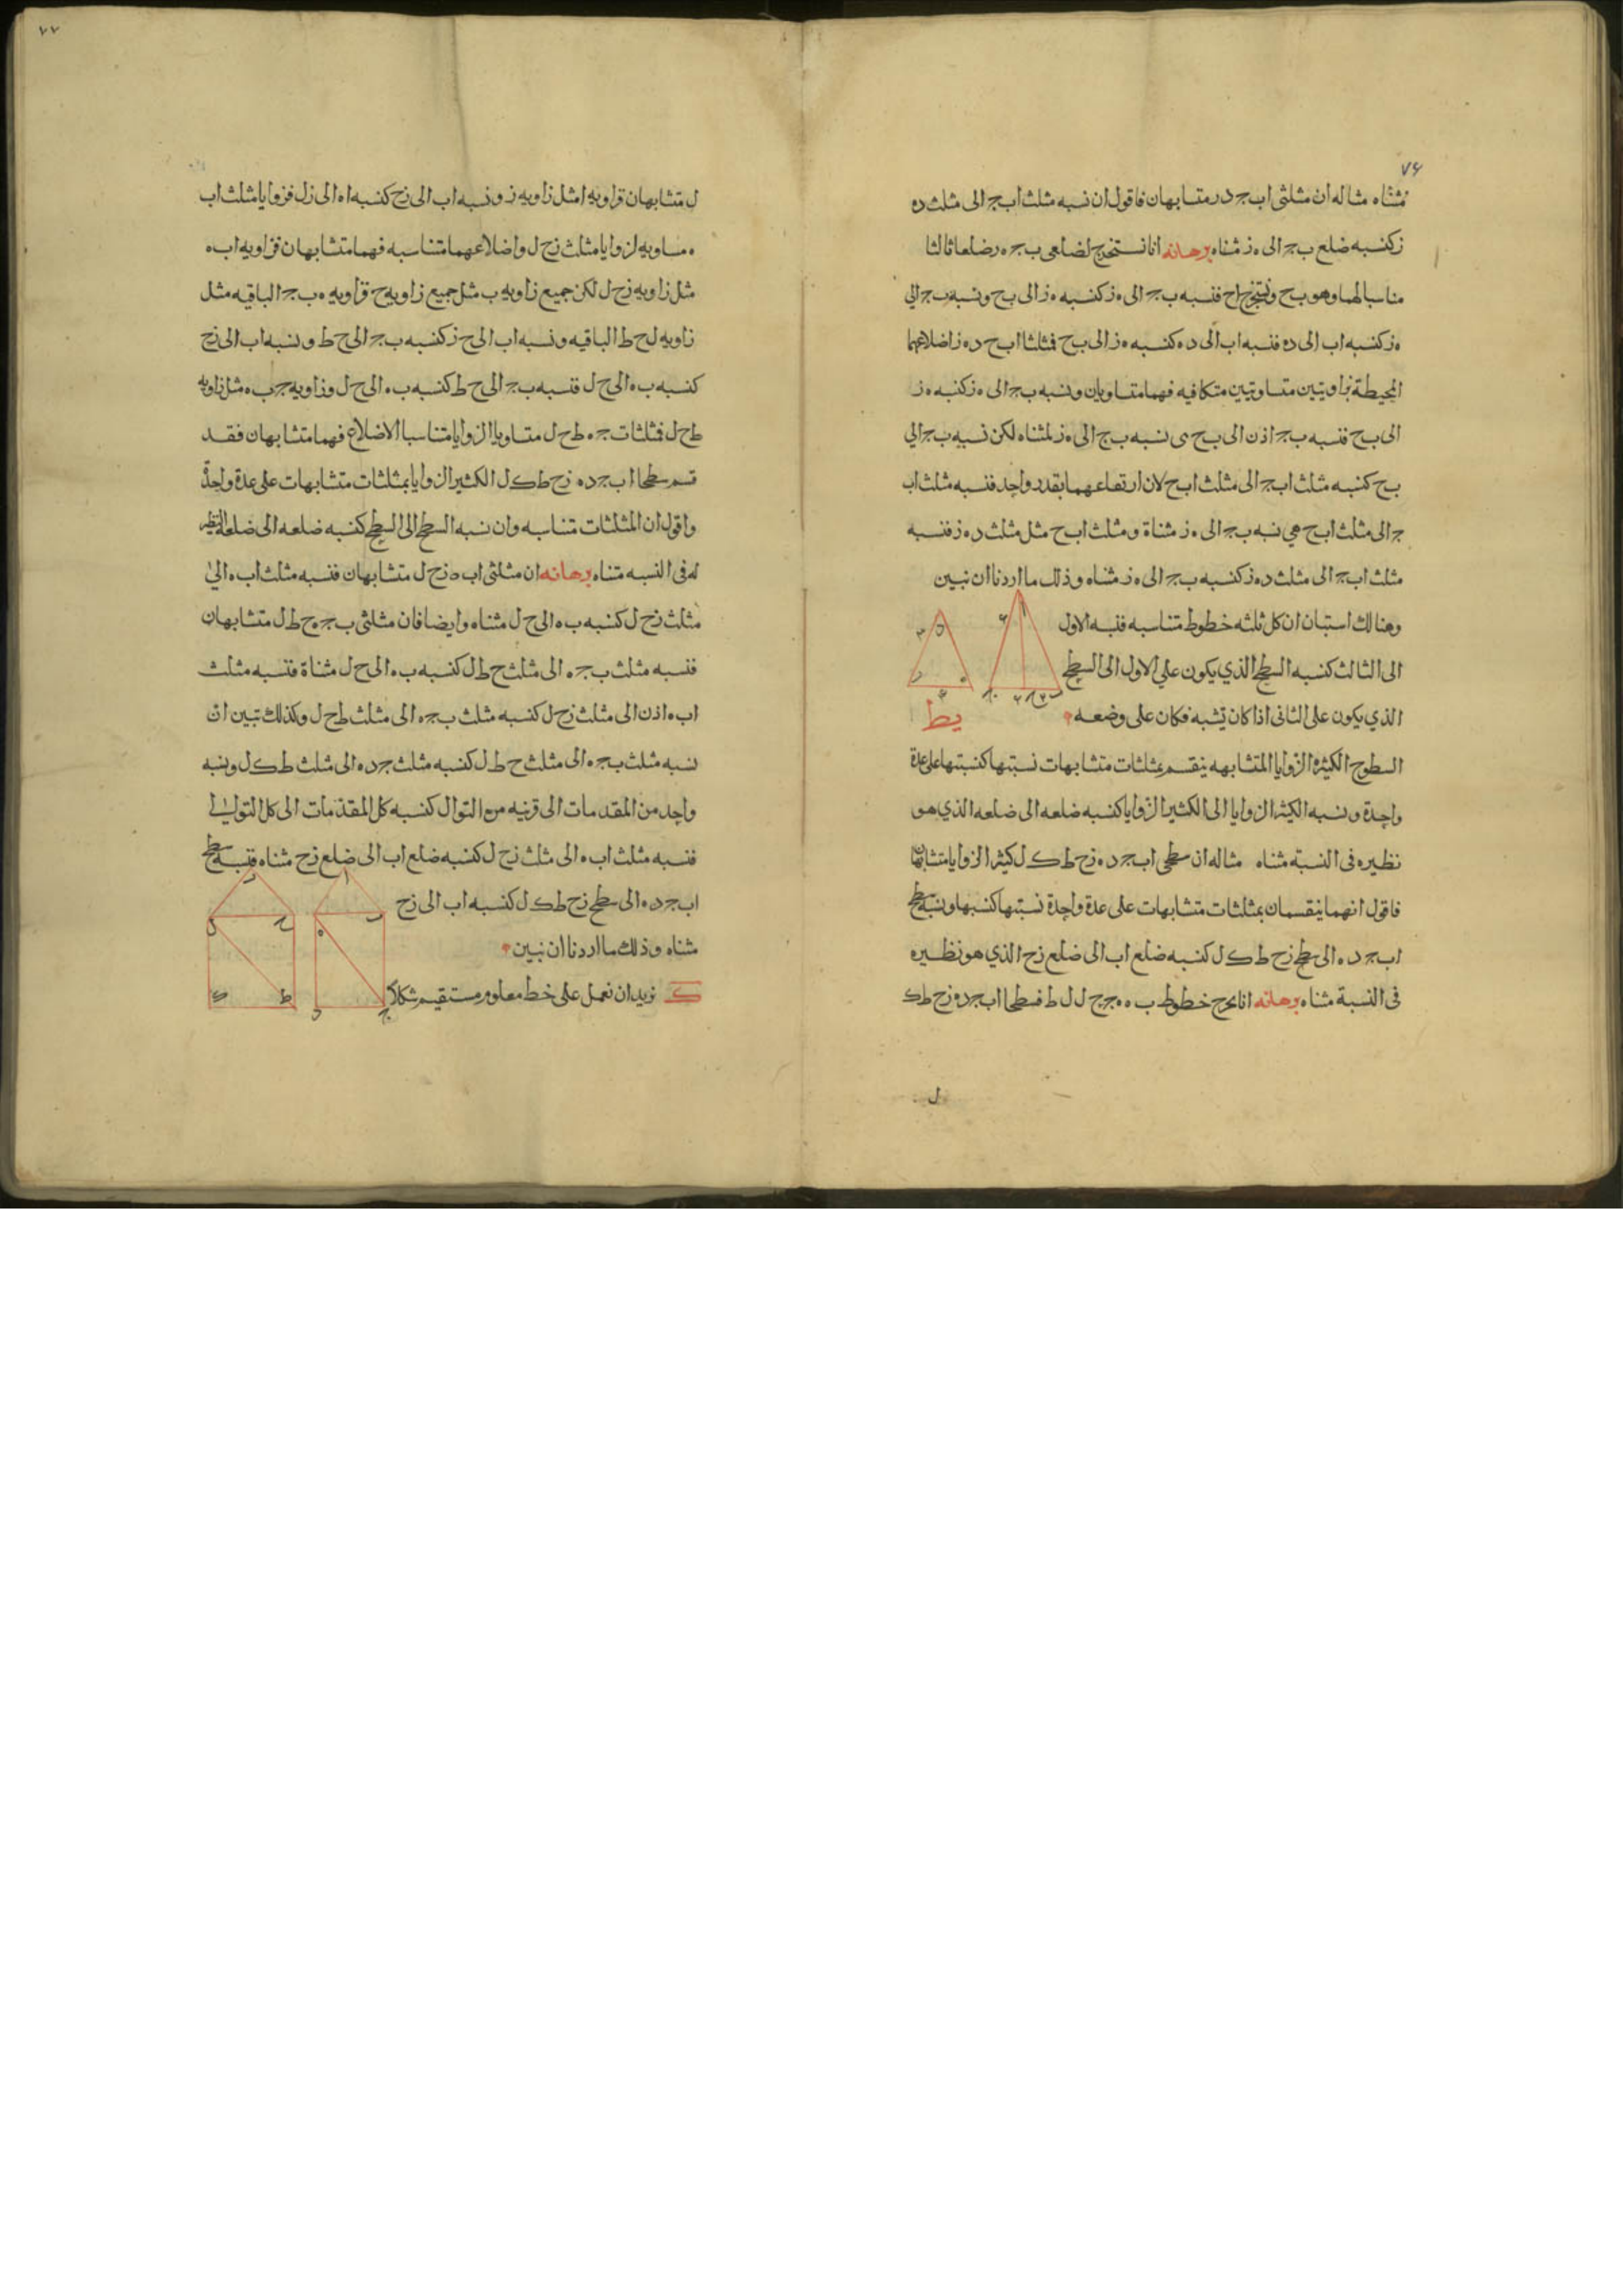 ٧۶
مثناه مثاله ان مثلثى اب ج د ر متشابهان فاقول ان نسبه مثلث اب ج الى مثلث د ه
ز كنسبه ضلع ب ج الى ه ز مثناه برهانه انا نستخرج لضلعى ب ج ه ر ضلعا ثالثا
مناسبا لهما وهو ب ح ونخرج اح فنسبه ب ج الى ه ز كنسبه ه ز الى ب ح ونسبه ب ج الى
ه ز كنسبه اب الى ده فنسبه اب الى د ه كنسبه ه ز الى ب ح فمثلثا اب ح د ه ز اضلاعهما
المحيطة بزاويتين متساويتين متكافيه فهما متساويان ونسبه ب ج الى ه ز كنسبه ه ز
الى ب ح فنسبه ب ج اذن الى ب ح ى نسبه ب ج الى ه ز لمثناه لكن نسبه ب ج الى
ب ح كنسبه مثلث اب ج الى مثلث اب ح لان ارتفاعهما بقدر واحد فنسبه مثلث اب
ج الى مثلث اب ح هي نسبه ب ج الى ه ز مثناة ومثلث اب ح مثل مثلث د ه ز فنسبه
مثلث اب ج الى مثلث د ه ز كنسبه ب ج الى ه ز مثناه وذلك ما اردنا ان نبين
وهنالك استبان ان كل ثلثه خطوط متناسبه فنسبه الاول
الى الثالث كنسبه السطح الذي يكون على الاول الى السطح
الذي يكون على الثانى اذا كان يشبه فكان على وضعه
يط
السطوح الكثيرة الزوايا المتشابهه ينقسم بمثلثات متشابهات نسبتها كنسبتها على عدة
واحدة ونسبه الكثير الزوايا الى الكثير الزوايا كنسبه ضلعه الى ضلعه الذي هو
نظيره فى النسبة مثناه مثاله ان سطحى اب ج د ه زح ط ك ل كثيرا الزوايا متشابهان
فاقول انهما ينقسمان بمثلثات متشابهات على عدة واحدة نسبتها كنسبها ونسبة سطح
اب ج د ه الى سطح زح ط ك ل كنسبه ضلع اب الى ضلع زح الذي هو نظيره
فى النسبة مثناه برهانه انا نخرج خطوط ب ه ه ج ح ل ل ط فسطحا اب ج ده زح ط ك
ل
٧٧
ل متشابهان فزاويه ا مثل زاويه ز ونسبه اب الى زح كنسبه اه الى زل فزوايا مثلث اب
ه مساويه لزوايا مثلث زح ل واضلاعهما متناسبه فهما متشابهان فزاويه اب ه
مثل زاويه زح ل لكن جميع زاويه ب مثل جميع زاويه ح فزاويه ه ب ج الباقيه مثل
زاويه ل ح ط الباقيه ونسبه اب الى ح ز كنسبه ب ج الى ح ط ونسبه اب الى زح
كنسبه ب ه الى ح ل فنسبه ب ج الى ح ط كنسبه ب ه الى ح ل وزاويه ج ب ه مثل زاويه
ط ح ل فمثلثا ب ج ه ط ح ل متساويا الزوايا متناسبا الاضلاع فهما متشابهان فقد
قسم سطحا اب ج د ه زح ط ك ل الكثيرا الزوايا بمثلثات متشابهات على عدة واحدة
واقول ان المثلثات متناسبه وان نسبه السطح الى السطح كنسبه ضلعه الى ضلعه النظير
له فى النسبه مثناه برهانه ان مثلثى اب ه زح ل متشابهان فنسبه مثلث اب ه الى
مثلث زح ل كنسبه ب ه الى ح ل مثناه وايضا فان مثلثى ب ج ه ح ط ل متشابهان
فنسبه مثلث ب ج ه الى مثلث ح ط ل كنسبه ب ه الى ح ل مثناة فنسبه مثلث
اب ه اذن الى مثلث زح ل كنسبه مثلث ب ج ه الى مثلث ط ح ل وكذلك تبين ان
نسبه مثلث ب ج ه الى مثلث ح ط ل كنسبه مثلث ج د ه الى مثلث ط ك ل ونسبه
واحد من المقدمات الى قرينه من التوالى كنسبه كل المقدمات الى كل التوالى
فنسبه مثلث اب ه الى مثلث زح ل كنسبه ضلع اب الى ضلع زح مثناه فنسبه سطح
اب ج د ه الى سطح زح ط ك ل كنسبه اب الى زح
مثناه وذلك ما اردنا ان نبين
ك نريد ان نعمل على خط معلوم مستقيم شكلا